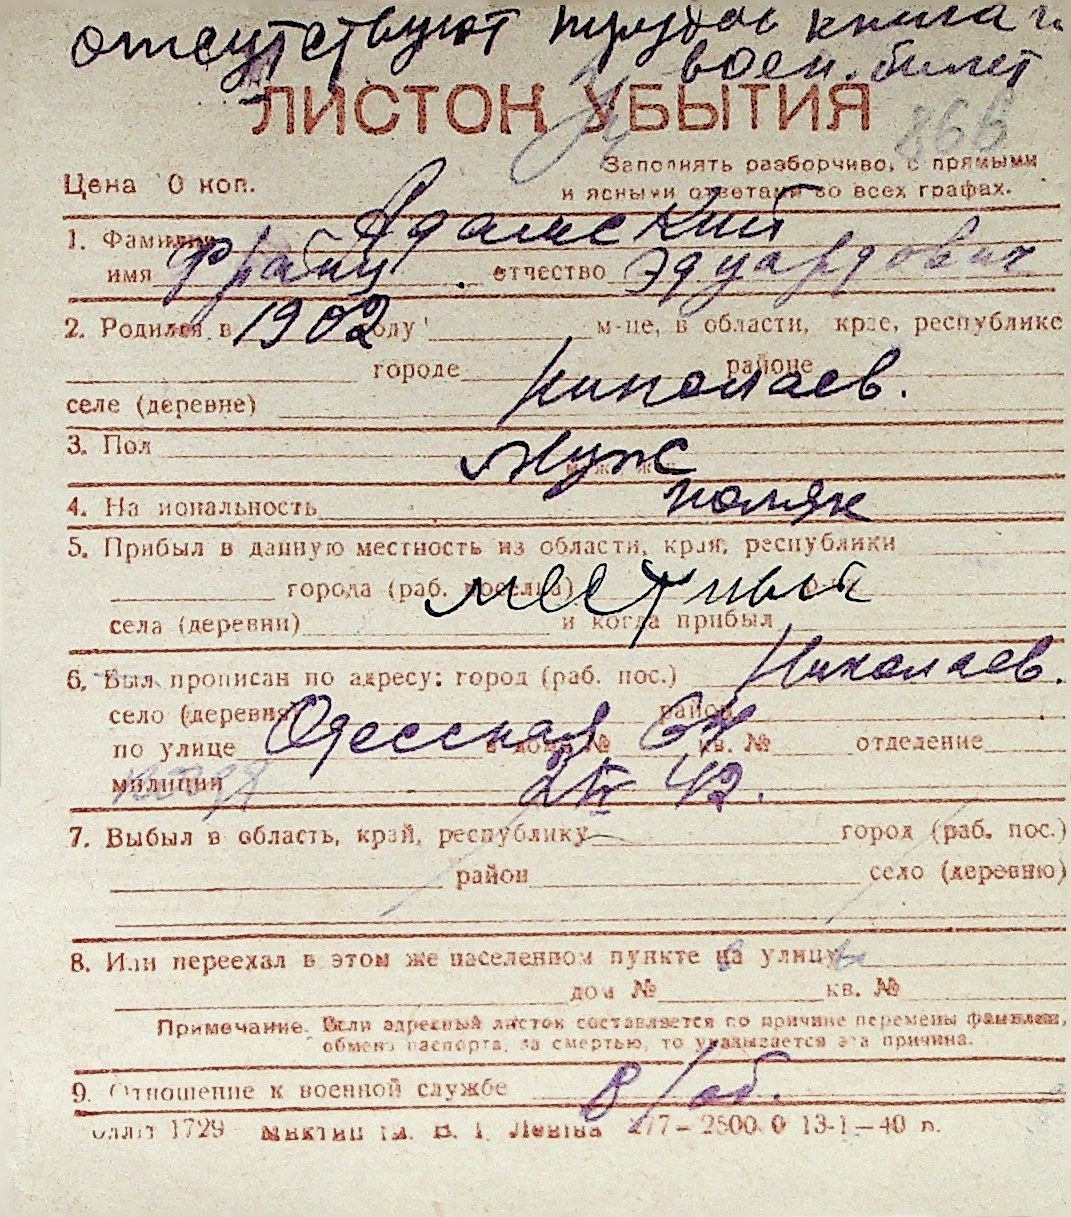 отсутствуют трудов книга и
воен. билет
ЛИСТОК УБЫТИЯ
86в
Заполнять разборчиво, с прямыми
Цена 0 коп.
и ясными ответами во всех графах.
1. Фамилия Адамский
имя Франц отчество Эдуардович
2. Родился в 1902 году м-це, в области, крае, республике
городе районе
Николаев.
селе (деревне)
3. Пол Муж
4. Национальность поляк
5. Прибыл в данную местность из области, края, республики
города (раб. поселка) местный
села (деревни) и когда прибыл
6. Был прописан по адресу: город (раб. пос.) Николаев.
село (деревня) район
по улице Одесская в доме № 64 кв. № отделение
милиции 42.
7. Выбыл в область, край, республику город (раб. пос.)
район село (деревню)
8. Или переехал в этом же населенном пункте на улицу
дом № кв. №
Примечание. Если адресный листок составляется по причине перемены фамилии,
обмена паспорта, за смертью, то указывается эта причина.
9. Отношение к военной службе в/об.
1729 Ленiна 277—2500 0 13-1—40 р.